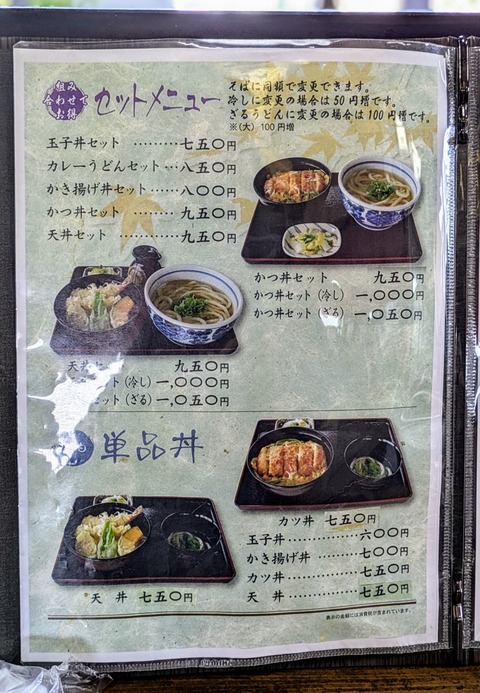 組み
合わせて
お得
セットメニュー
そばに同額で変更できます。
冷しに変更の場合は50円増です。
ざるうどんに変更の場合は100円増です。
※(大) 100円増
玉子丼セット ………七五〇円
カレーうどんセット…八五〇円
かき揚げ丼セット…八〇〇円
かつ丼セット ………九五〇円
天丼セット …………九五〇円
かつ丼セット 九五〇円
かつ丼セット (冷し) 一,〇〇〇円
かつ丼セット (ざる) 一,〇五〇円
天丼 九五〇円
セット (冷し) 一,〇〇〇円
セット (ざる) 一,〇五〇円
単品丼
カツ丼 七五〇円
玉子丼……………六〇〇円
かき揚げ丼………七〇〇円
カツ丼……………七五〇円
天 丼……………七五〇円
天 丼 七五〇円
表示の金額には消費税が含まれています。